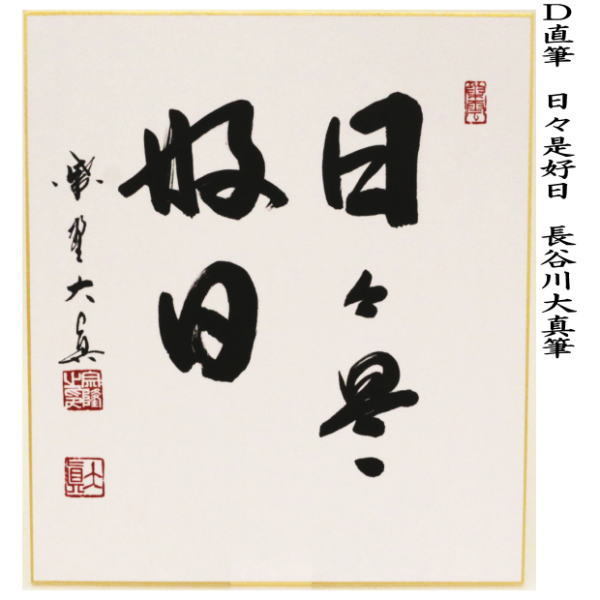 D直筆 日々是好日 長谷川大真筆
日々是
好日
大真